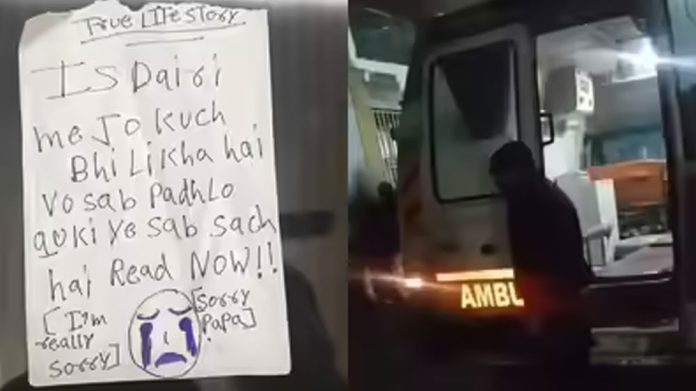 TRUE LIFE STORY
IS Dairi
me Jo kuch
Bhi Likha hai
Vo sab Padhlo
quki ye sab sach
hai Read NOW!!
[I'm
really
sorry]
[Sorry
Papa]
AMBU